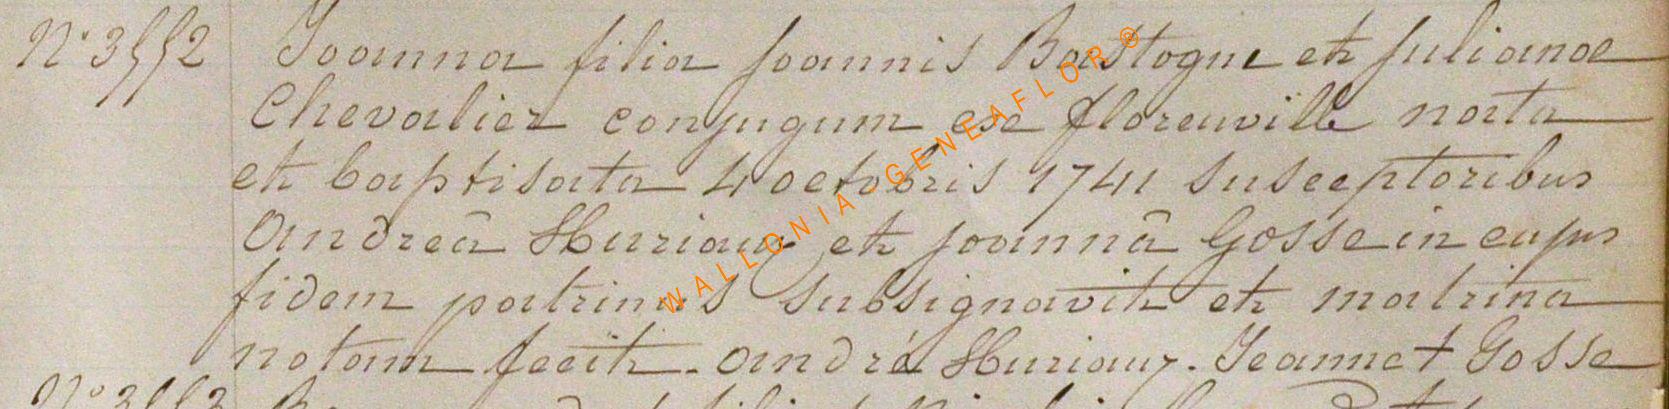 N° 3552 Joanna filia Joannis Bastogne et Julianae
Chevalier conjugum exe florenville nata
et baptisata 4 octobris 1741 susceptoribus
Andreâ Huriaux et joannâ Gosse in cujus
fidem patrinus subsignavit et matrina
notam fecit. André Huriaux. Jeanne + Gosse
N° 3553
WALLONIA-GENEAFLOR®